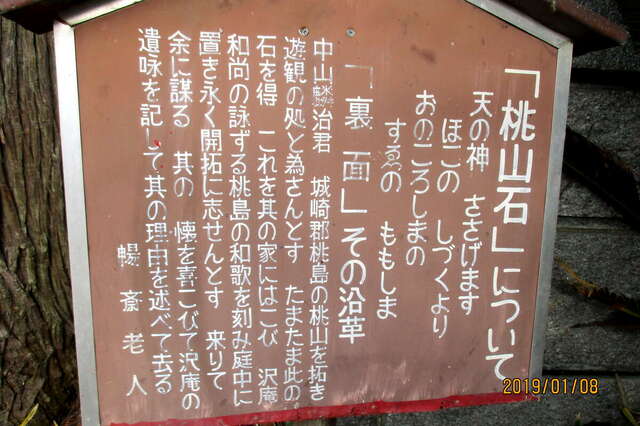 「桃山石」について
天の神　ささげます
ほこの　しづくより
おのころしまの
すゑの　ももしま
「裏面」その沿革
中山　治君　城崎郡桃島の桃山を拓き
遊観の処と為さんとす　たまたま此の
石を得　これを其の家にはこび　沢庵
和尚の詠ずる桃島の和歌を刻み庭中に
置き永く開拓に志せんとす　来りて
余に謀る　其の　懐を喜こびて沢庵の
遺咏を記して其の理由を述べて去る
暢斎老人
2019/01/08